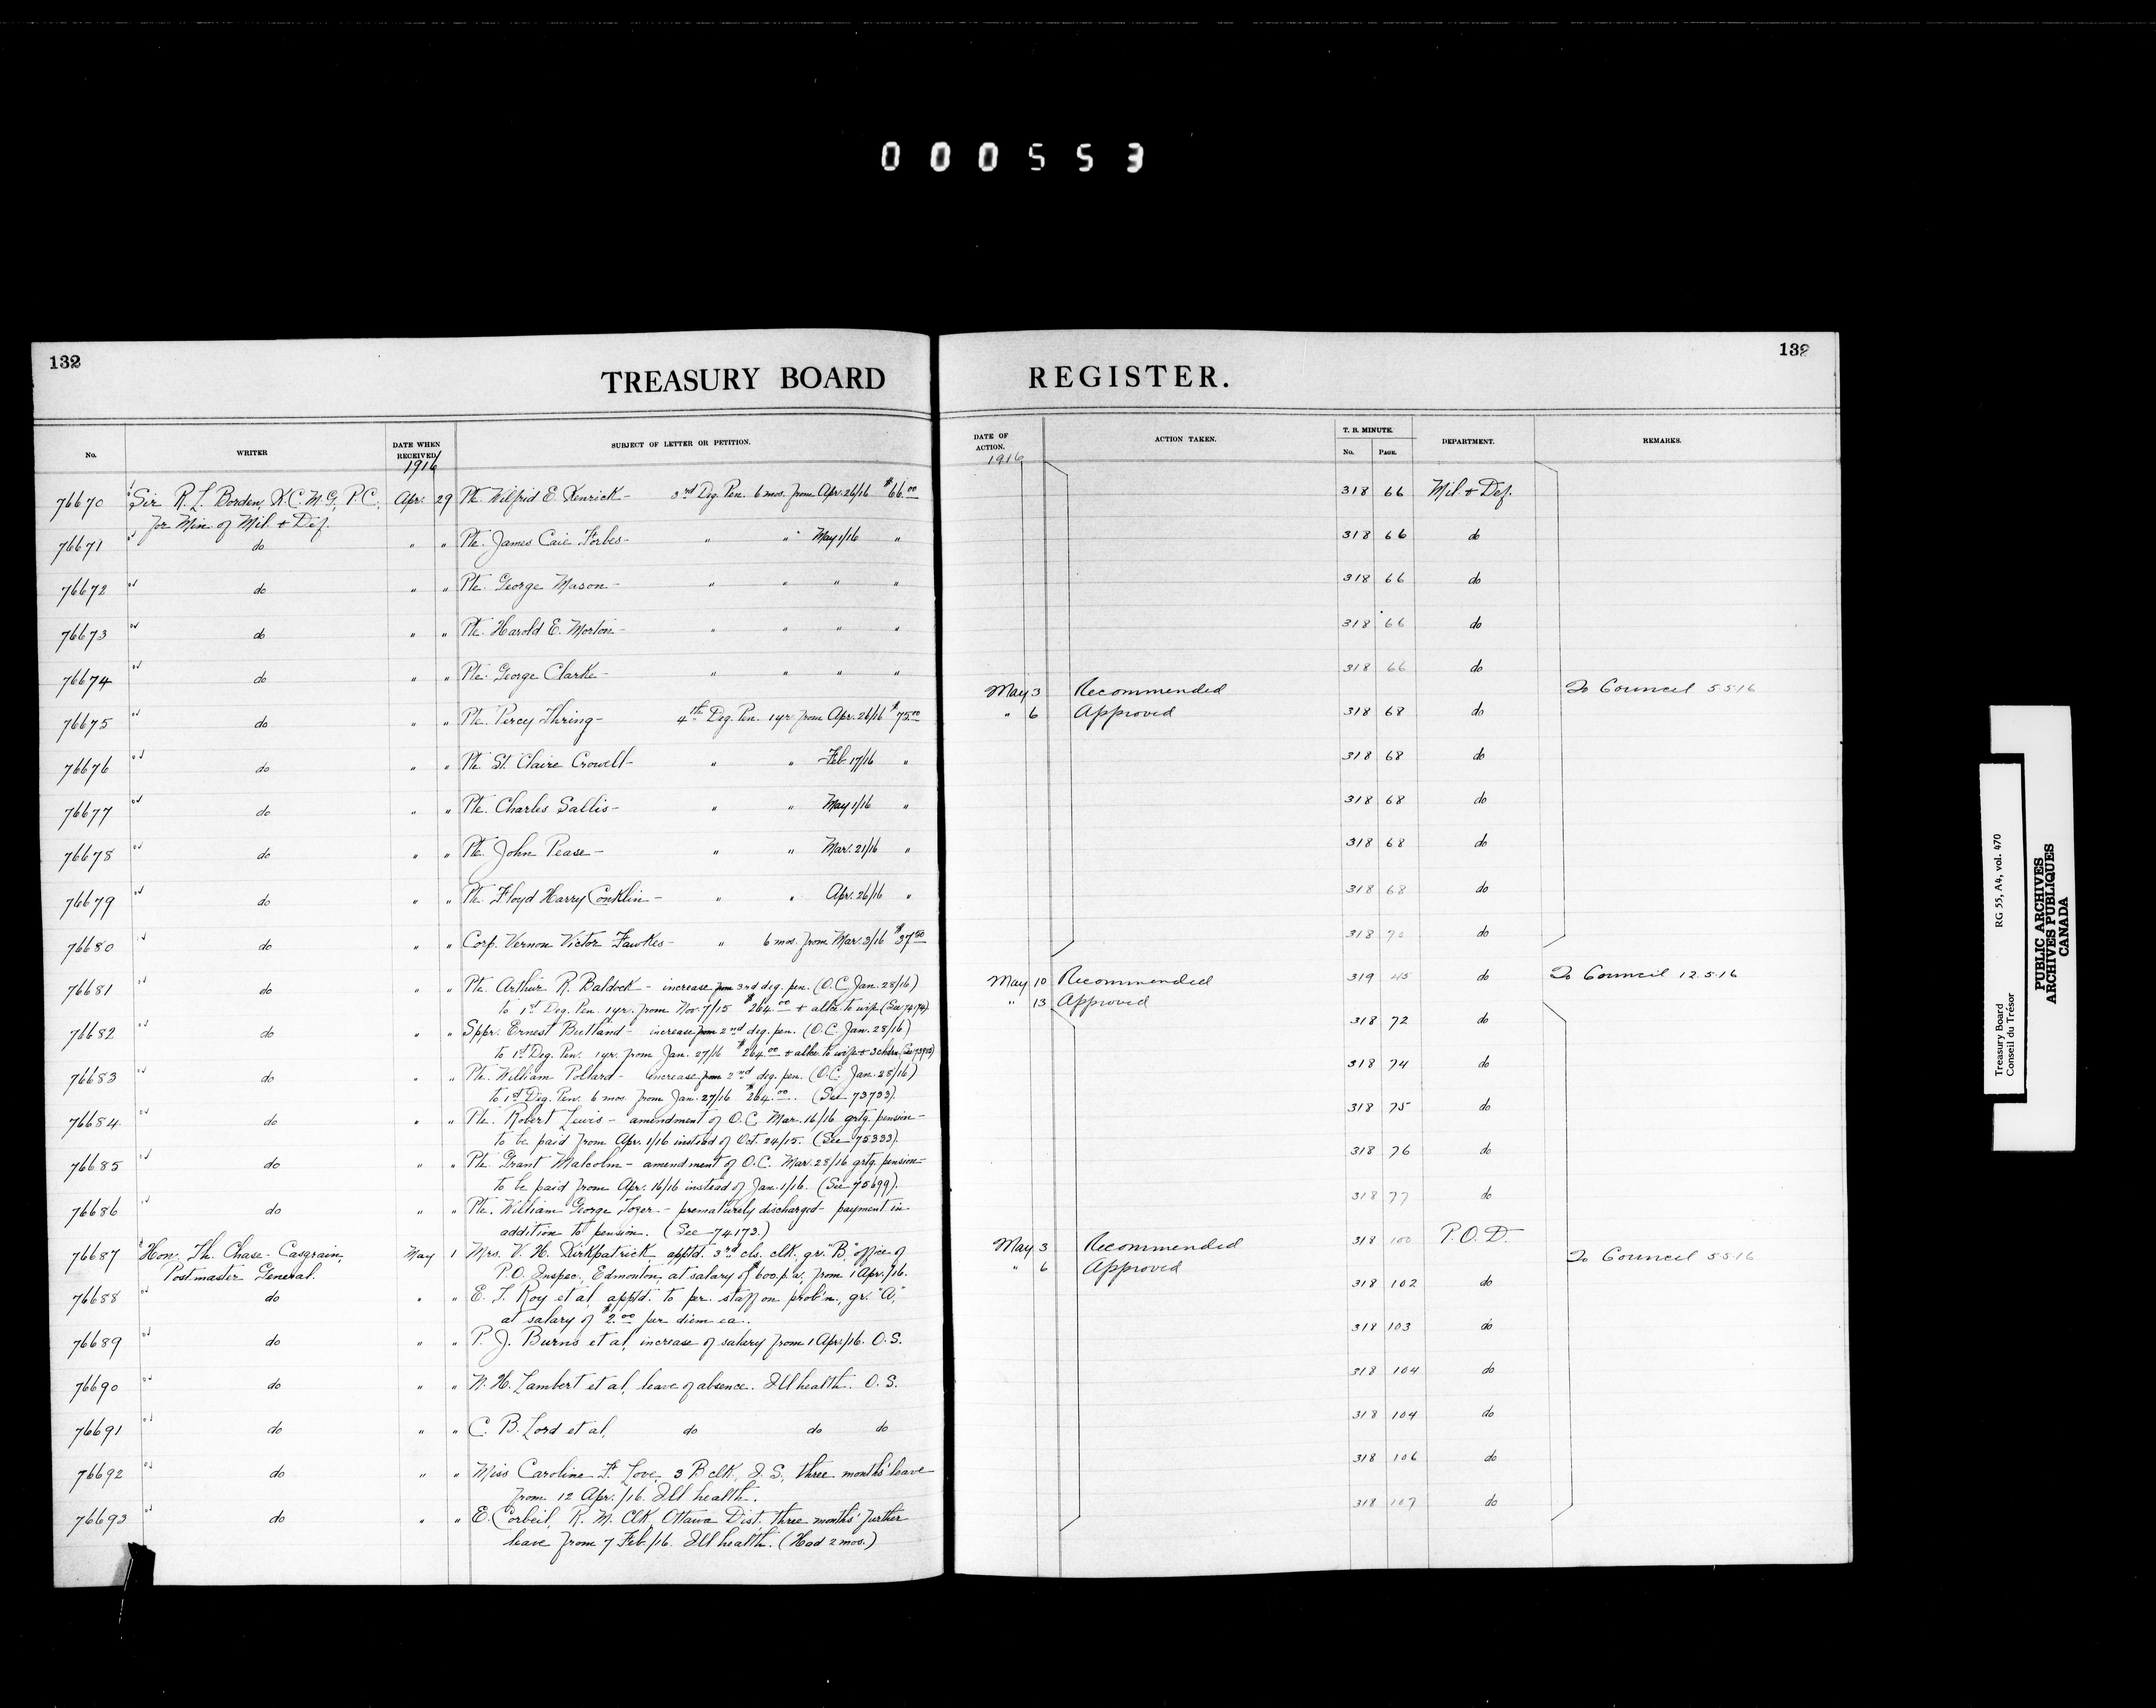 000553
132
TREASURY BOARD REGISTER.
132
No. WRITER DATE WHEN RECEIVED SUBJECT OF LETTER OR PETITION. DATE OF ACTION. ACTION TAKEN. T. B. MINUTE. No. PAGE. DEPARTMENT. REMARKS.
1916 1916
76670 Sir R. L. Borden, K.C.M.G., P.C., Apr. 29 Pte. Wilfrid E. Kenrick - 3rd Deg. Pen. 6 mos. from Apr. 26/16 $66.00 318 66 Mil. & Def.
for Min. of Mil. & Def.
76671 do " " Pte. James Caie Forbes - " " May 1/16 " 318 66 do
76672 do " " Pte. George Mason - " " " " 318 66 do
76673 do " " Pte. Harold E. Morton - " " " " 318 66 do
76674 do " " Pte. George Clarke - " " " " 318 66 do
May 3 Recommended To Council 5.5.16
76675 do " " Pte. Percy Thring - 4th Deg. Pen. 1 yr. from Apr. 26/16 $75.00 " 6 Approved 318 68 do
76676 do " " Pte. St. Claire Crowell - " " Feb. 17/16 " 318 68 do
76677 do " " Pte. Charles Sallis - " " May 1/16 " 318 68 do
76678 do " " Pte. John Pease - " " Mar. 21/16 " 318 68 do
76679 do " " Pte. Floyd Harry Conklin - " " Apr. 26/16 " 318 68 do
76680 do " " Corp. Vernon Victor Fawkes - " 6 mos. from Mar. 3/16 $37.50 318 70 do
76681 do " " Pte. Arthur R. Baldock - increase from 3rd deg. pen. (O.C. Jan. 28/16) May 10 Recommended 319 45 do To Council 12.5.16
to 1st Deg. Pen. 1 yr. from Nov. 7/15 $264.00 + allce. to wife (See 74174) " 13 Approved
76682 do " " Sppr. Ernest Butland - increase from 2nd deg. pen. (O.C. Jan. 28/16) 318 72 do
to 1st Deg. Pen. 1 yr. from Jan. 27/16 $264.00 + allce. to wife + 3 chdrn.
76683 do " " Pte. William Pollard - increase from 2nd deg. pen. (O.C. Jan. 28/16) 318 74 do
to 1st Deg. Pen. 6 mos. from Jan. 27/16 $264.00. (See 73733).
76684 do " " Pte. Robert Lewis - amendment of O.C. Mar. 16/16 grtg. pension - 318 75 do
to be paid from Apr. 1/16 instead of Oct. 24/15. (See 75333).
76685 do " " Pte. Grant Malcolm - amendment of O.C. Mar. 28/16 grtg. pension - 318 76 do
to be paid from Apr. 16/16 instead of Jan. 1/16. (See 75699).
76686 do " " Pte. William George Tozer - prematurely discharged - payment in 318 77 do
addition to pension. (See 74173.)
76687 Hon. Th. Chase-Casgrain, May 1 Mrs. V. H. Kirkpatrick, apptd. 3rd cls. clk. gr. "B." office of May 3 Recommended 318 100 P.O.D. To Council 5.5.16
Postmaster General. P.O. Inspec., Edmonton, at salary of $600 p.a. from 1 Apr./16. " 6 Approved
76688 do " " E. T. Roy et al, apptd. to per. staff on prob'n., gr. "A", 318 102 do
at salary of $2.00 per diem ea.
76689 do " " P. J. Burns et al, increase of salary from 1 Apr/16. O.S. 318 103 do
76690 do " " W. H. Lambert et al, leave of absence. Ill health. O.S. 318 104 do
76691 do " " C. B. Lord et al, do do do 318 104 do
76692 do " " Miss Caroline F. Love, 3 B clk, I.S., three months' leave 318 106 do
from 12 Apr./16. Ill health.
76693 do " " E. Corbeil, R. M. Clk, Ottawa Dist. three months' further 318 107 do
leave from 7 Feb/16. Ill health. (Had 2 mos.)
Treasury Board RG 55, A4, vol. 470
Conseil du Trésor
PUBLIC ARCHIVES
ARCHIVES PUBLIQUES
CANADA